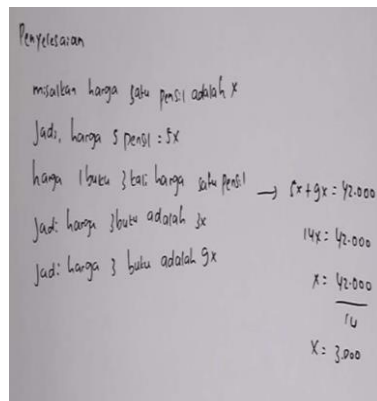 Penyelesaian
misalkan harga satu pensil adalah x
Jadi, harga 5 pensil = 5x
harga 1 buku 3 kali harga satu pensil → 5x + 9x = 42.000
Jadi harga 3 buku adalah 3x
14x = 42.000
Jadi harga 3 buku adalah 9x
x = 42.000
14
x = 3.000